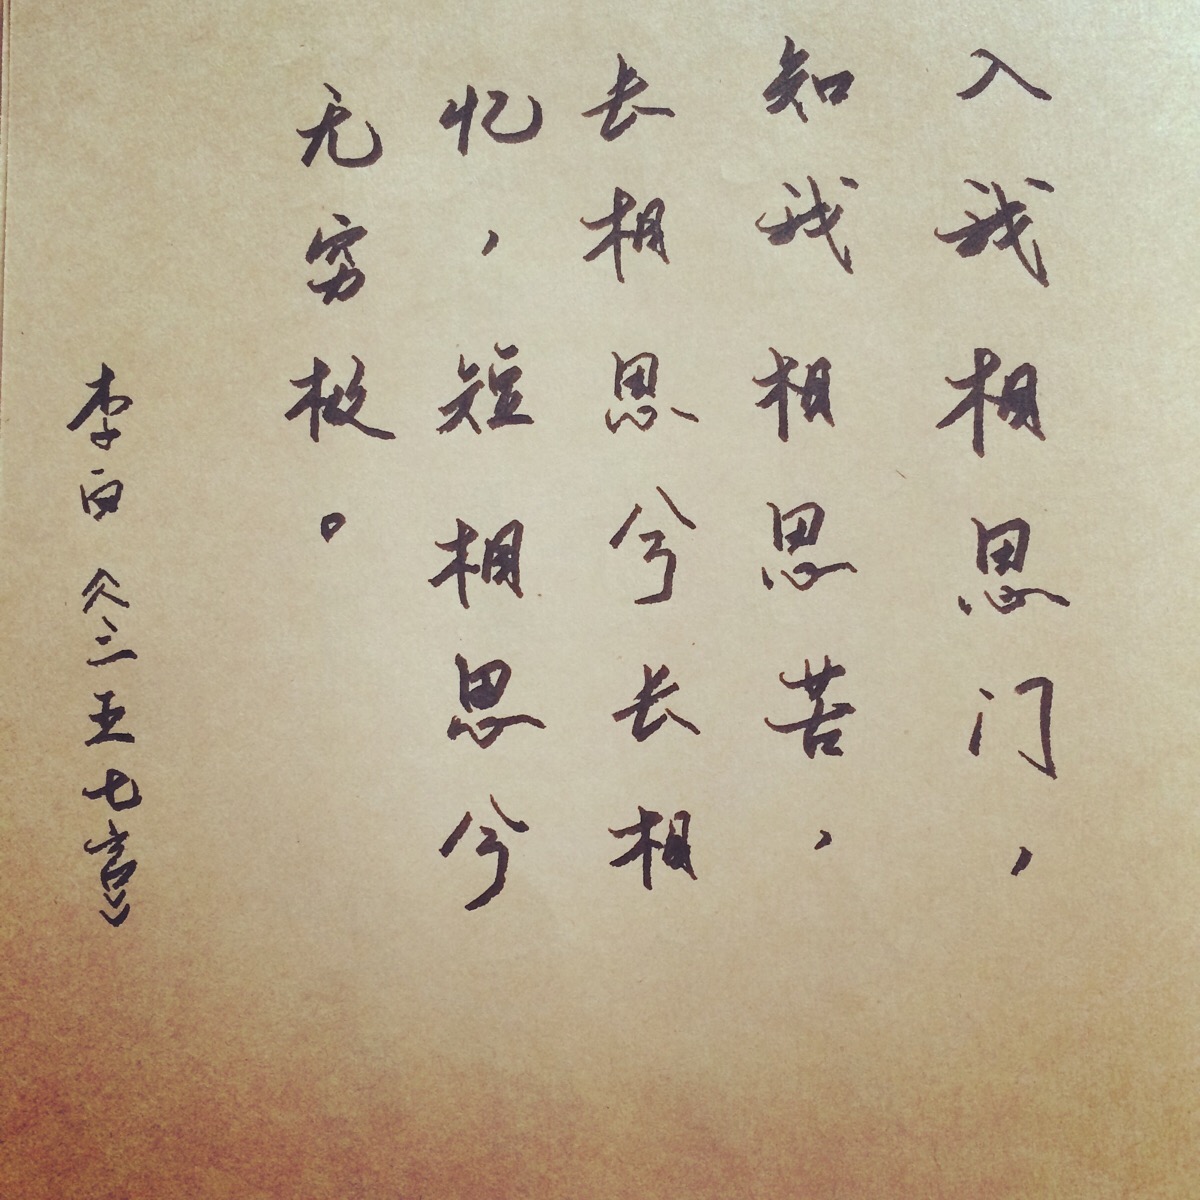 入我相思门，
知我相思苦，
长相思兮长相
忆，短相思兮
无穷极。
李白《三五七言》